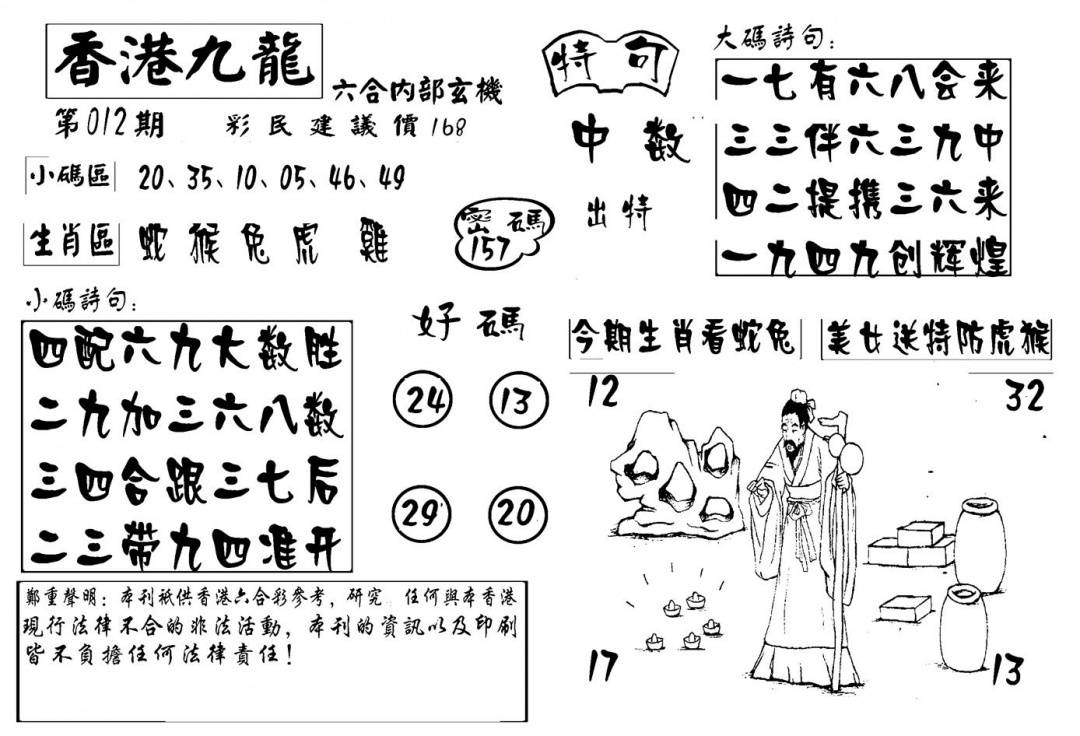 香港九龍
六合内部玄機
第012期 彩民建議價168
小碼區 20、35、10、05、46、49
生肖區 蛇猴兔虎雞
密碼
157
小碼詩句：
四配六九大数胜
二九加三六八数
三四合跟三七后
二三带九四准开
好碼
24 13
29 20
鄭重聲明：本刊祇供香港六合彩參考，研究．任何與本香港
現行法律不合的非法活動，本刊的資訊以及印刷
皆不負擔任何法律責任！
特句
中数
出特
大碼詩句：
一七有六八会来
三三伴六三九中
四二提携三六来
一九四九创辉煌
今期生肖看蛇兔
美女送特防虎猴
12 32
17 13